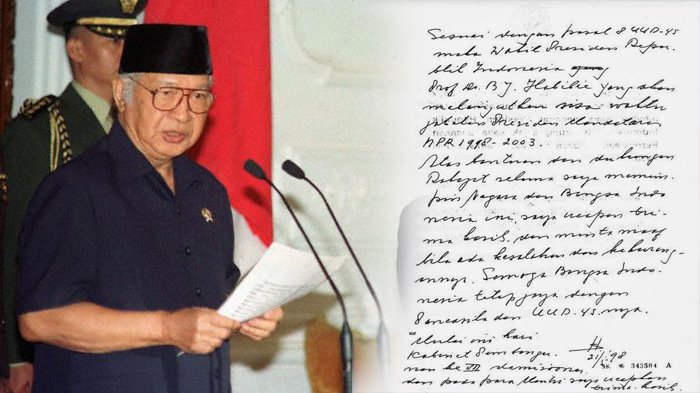 Sesuai dengan pasal 8 UUD-45
maka Wakil Presiden Repu-
blik Indonesia yang
Prof Dr. B J. Habibie yang akan
melanjutkan sisa waktu
jabatan Presiden Mandataris
MPR 1998-2003.
Atas bantuan dan dukungan
Rakyat selama saya memim-
pin Negara dan Bangsa Indo
nesia ini, saya ucapkan teri-
ma kasih, dan minta maaf
bila ada kesalahan dan kekurang-
annya. Semoga Bangsa Indo-
nesia tetap jaya dengan
Pancasila dan UUD-45 nya.
Mulai ini hari
Kabinet Pembangu-
nan ke VII demisioner
dan pada para Mentri saya ucapkan
terima kasih.
21/5-98
SK № 343504 A